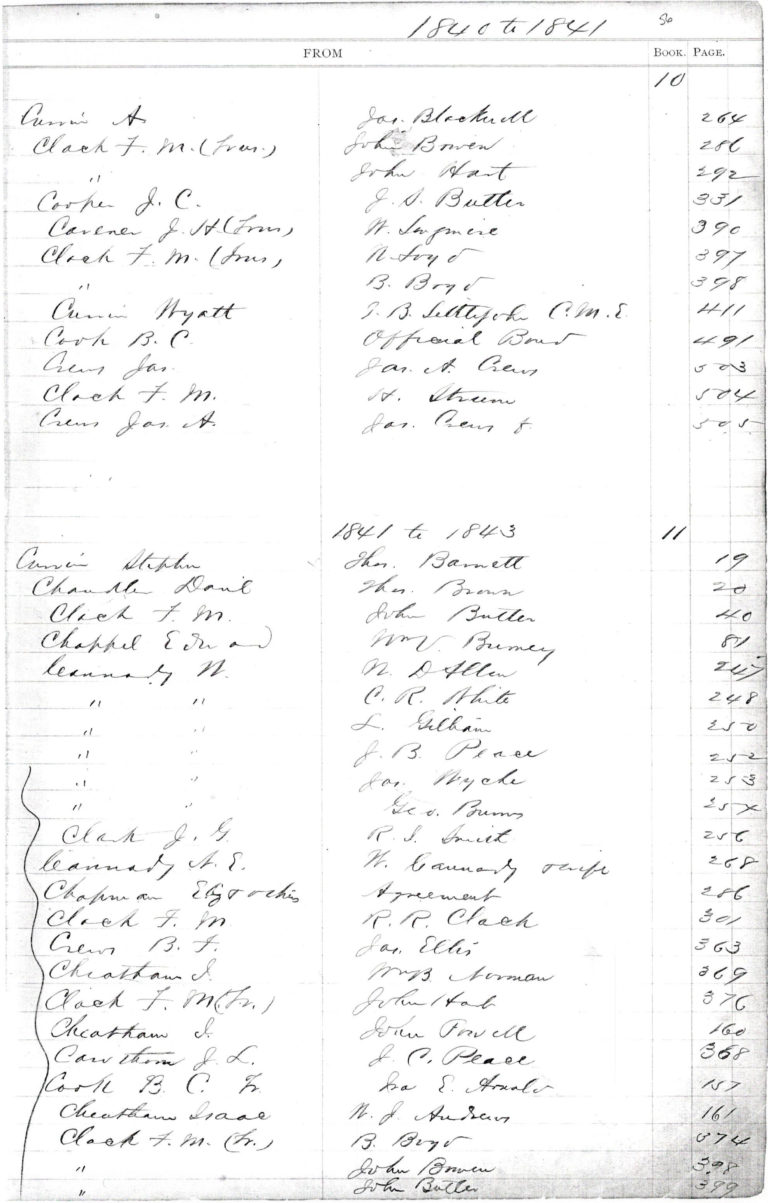 1840 to 1841
FROM BOOK. PAGE.
10
Currin A. Jas. Blackwell 264
Clack F. M. (Trus.) John Bowen 286
" John Hart 292
Cooper J. C. J. S. Butler 331
Cavener J. H. (Trus, W. 390
Clack F. M. (Trus, 397
" B. Boyd 398
Currin Wyatt T. B. Littlejohn C. M. E. 411
Cook B. C. Official Bond 491
Crews Jas. Jas. A. Crews 503
Clack F. M. H. 504
Crews Jas. A. Jas. Crews 505
1841 to 1843 11
Currin Stephen Thos. Barnett 19
Chandler Danil Thos. Brown 20
Clack F. M. John Butler 40
Chappel Edward Wm V. Bumey 81
Cannady W. N. D Allen 247
" " C. R. White 248
" " L. Gilliam 250
" " J. B. Peace 252
" " Jas. Wyche 253
" " Geo. Burns 254
Clark J. G. R. I. Smith 256
Cannady N. E. W. Cannady & wife 268
Chapman Eliz & others Agreement 286
Clack F. M R. R. Clack 301
Crews B. F. Jas. Ellis 363
Cheatham I. Wm B. Norman 369
Clack F. M (Tr.) John 376
Cheatham I. John 160
Cawthorn J. L. J. C. Peace 368
Cook B. C. Tr. Ira E. Arnold 157
Cheatham Isaac W. J. Andrews 161
Clack F. M. (Tr.) B. Boyd 374
" John Bowen 398
" John Butler 399